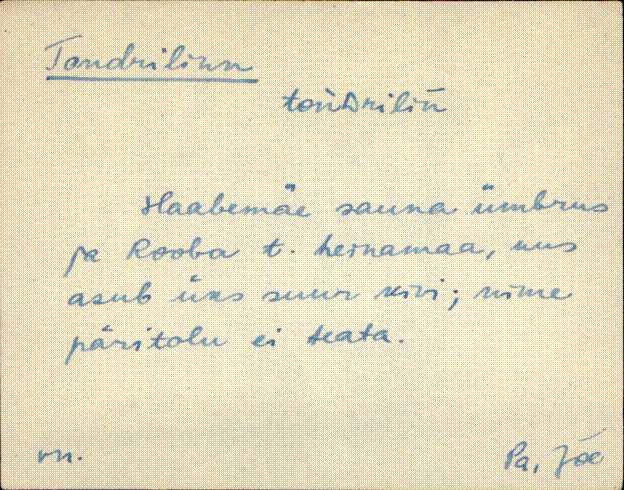 Tondrilinn
toǹDrilīn
Haabemäe sauna ümbrus
ja Rooba t. heinamaa, kus
asub üks suur kivi; nime
päritolu ei teata.
vn.
Pa, Jõe